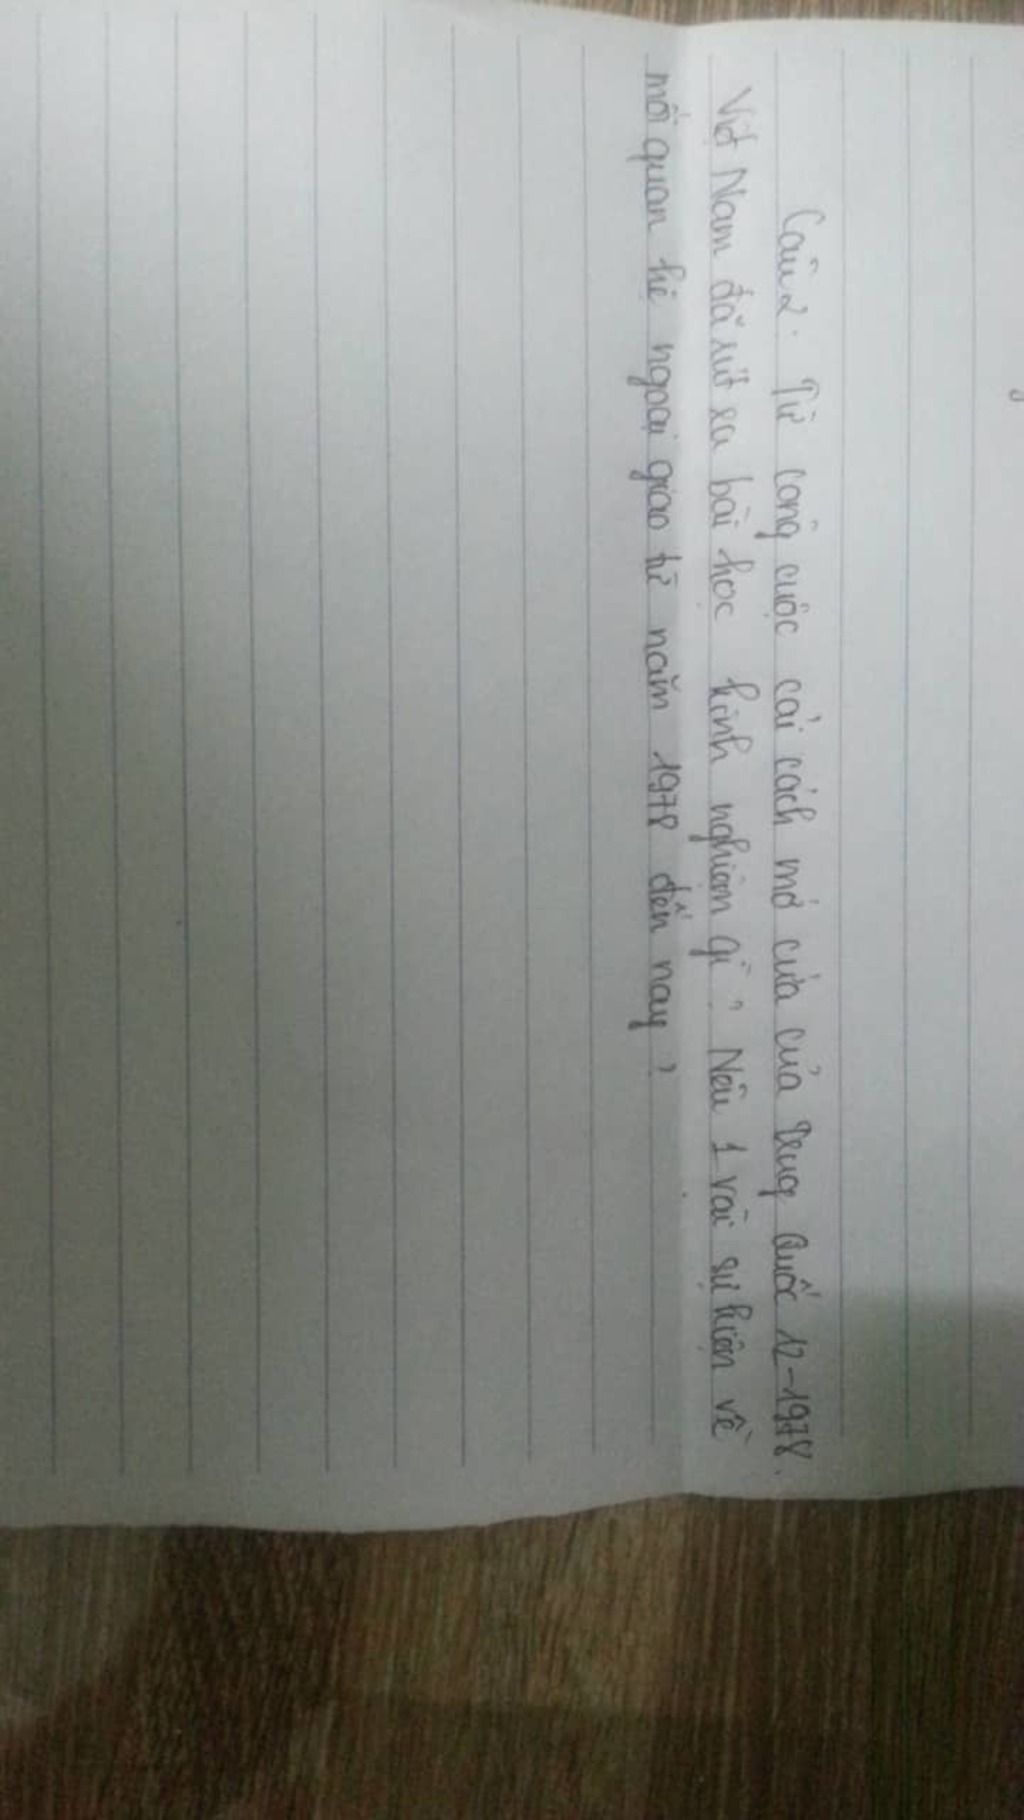 Câu 2. Từ công cuộc cải cách mở cửa của Trung Quốc 12-1978.
Việt Nam đã rút ra bài học kinh nghiệm gì? Nêu 1 vài sự kiện về
mối quan hệ ngoại giao từ năm 1978 đến nay?